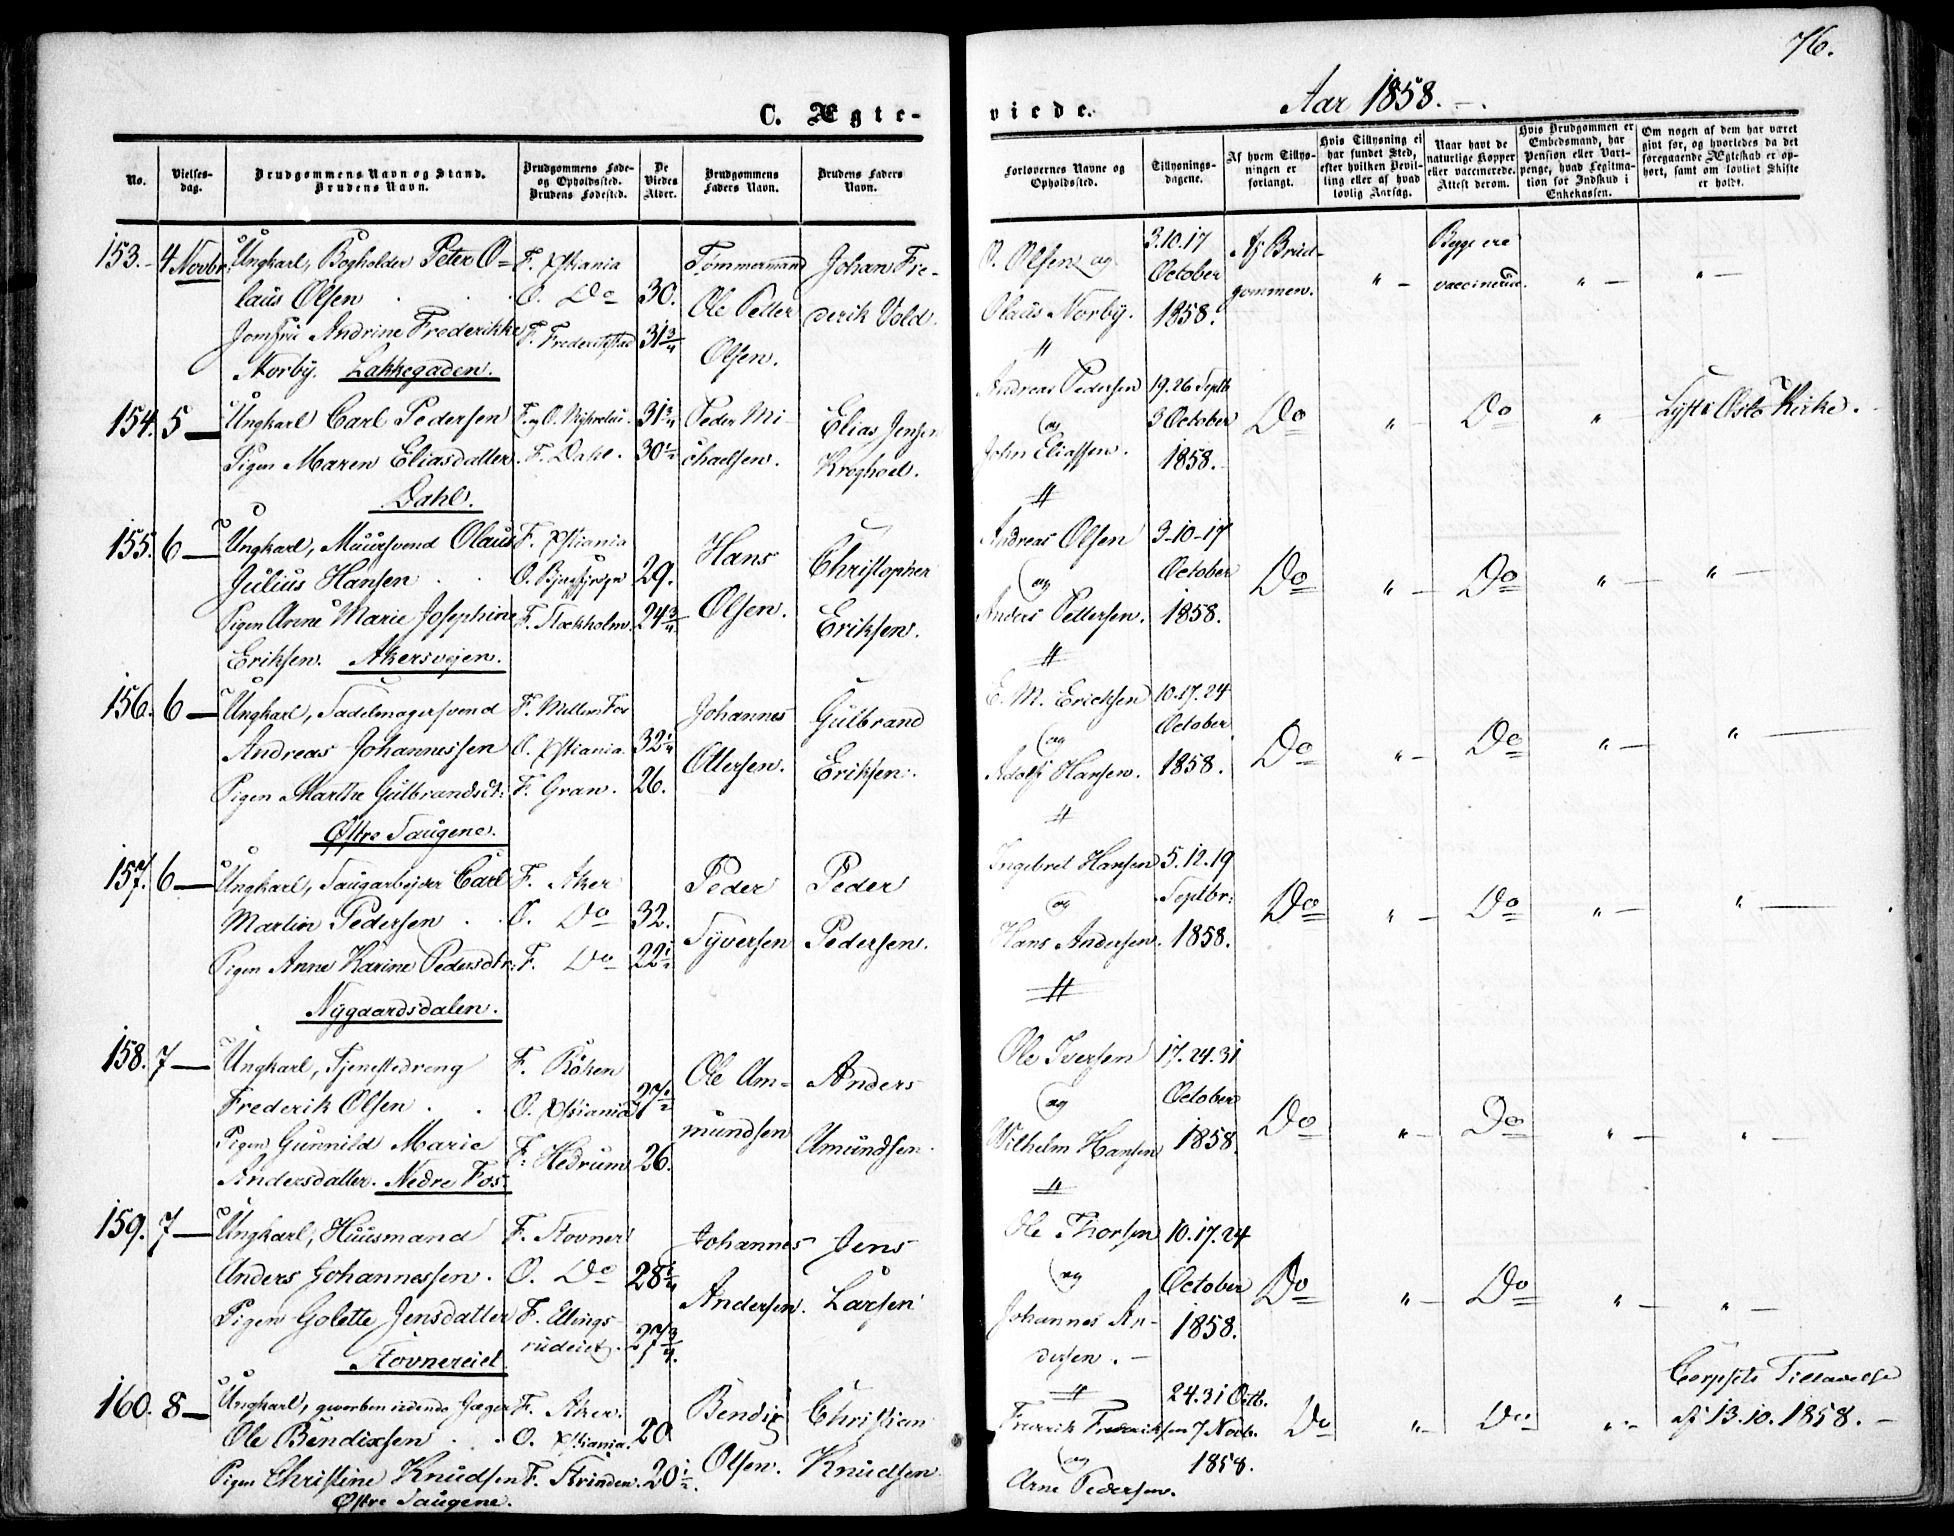 76.
C. Ægte-
viede.
Aar 1858.
No.
Vielses-
dag.
Brudgommens Navn og Stand.
Brudens Navn.
Brudgommens Føde-
og Opholdssted.
Brudens Fødested.
De
Viedes
Alder.
Brudgommens
Faders Navn.
Brudens Faders
Navn.
Forlovernes Navne og
Opholdssted.
Tillysnings-
dagene.
Af hvem Tillys-
ningen er
forlangt.
Hvis Tillysning ei
har fundet Sted,
efter hvilken Bevil-
ling eller af hvad
lovlig Aarsag.
Naar havt de
naturlige Kopper
eller vaccinerede.
Attest derom.
Hvis Brudgommen er
Embedsmand, har
Pension eller Vart-
penge, hvad Legitima-
tion for Indskud i
Enkekassen.
Om nogen af dem har været
givt før, og hvorledes da det
foregaaende Ægteskab er op-
hørt, samt om lovligt Skifte
er holdt.
153. 4 Novbr. Ungkarl, Bogholder Peter O- F. Xstiania Tømmermand Johan Fre-
laus Olsen O. Do 30. Ole Petter derik Vold.
Jomfru Andrine Frederikke F. Frederikstad 31 3/4 Olsen.
Norby. Lakkegaden.
O. Olsen og 3.10.17 Af Brud- Begge ere
October gommen. " vaccinerede. " "
Olaus Norby. 1858.
154. 5 Ungkarl Carl Pedersen 31 3/4 Peder Mi- Elias Jensen
Pigen Maren Eliasdatter F. Dahl. 30 1/2 chaelsen. Kroghoel.
Dahl.
Andreas Pedersen 19.26 Septb
og 3 October Do " Do " Lyst i Oslo Kirke.
John Eliassen. 1858.
155. 6 Ungkarl, Muursvend Olaus F. Xstiania Hans Christopher
Julius Hansen 29. Olsen. Eriksen.
Pigen Anne Marie Josephine F. Stockholm. 24 3/4
Eriksen. Akersvejen.
Andreas Olsen 3-10-17
og October Do " Do " "
Anders Pettersen. 1858.
156. 6 Ungkarl, Sadelmagersvend F. Mellem Fos Johannes Gulbrand
Andreas Johannessen O. Xstiania. 32 1/4 Ottersen. Eriksen.
Pigen Marthe Gulbrandsdt: F. Gran. 26.
Østre Saugene.
E. M. Erichsen 10.17.24
og October Do " Do " "
Adolf Hansen. 1858.
157. 6 Ungkarl, Saugarbejder Carl F. Aker Peder Peder
Martin Pedersen O. Do 32. Syversen Pedersen.
Pigen Anne Karine Pedersdtr: F. Do 22 1/2
Nygaardsdalen.
Ingebret Hansen 5.12.19
og Septbr: Do " Do " "
Hans Andersen. 1858.
158. 7 Ungkarl, Tjenestedreng F. Röken Ole Am- Anders
Frederik Olsen O. Xstiania 27 1/2 mundsen Amundsen.
Pigen Gunnild Marie F. Hedrum 26.
Andersdatter. Nedre Fos.
Ole Iversen 17.24.31
og October Do " Do " "
Wilhelm Hansen 1858.
159. 7 Ungkarl, Huusmand F. Stovner Johannes Jens
Anders Johannessen. O. Do 28 1/4 Andersen. Larsen
Pigen Golette Jensdatter F. Ellings-
rudeiet. 27 3/4.
Stovnereiet
Ole Thorsen 10.17.24
og October Do " Do " "
Johannes An- 1858.
dersen.
160. 8 Ungkarl, gevorben ridende Jæger F. Aker. Bendix Christian
Ole Bendixsen O. Xstiania. 20 Olsen. Knudsen
Pigen Christine Knudsen F. Strinden. 20 1/2.
Østre Saugene.
24.31 Octb.
Fredrik Fredriksen 7 Novb. Do " Do " Corpsets Tilladelse
og 1858. af 13.10.1858.
Arne Pedersen.